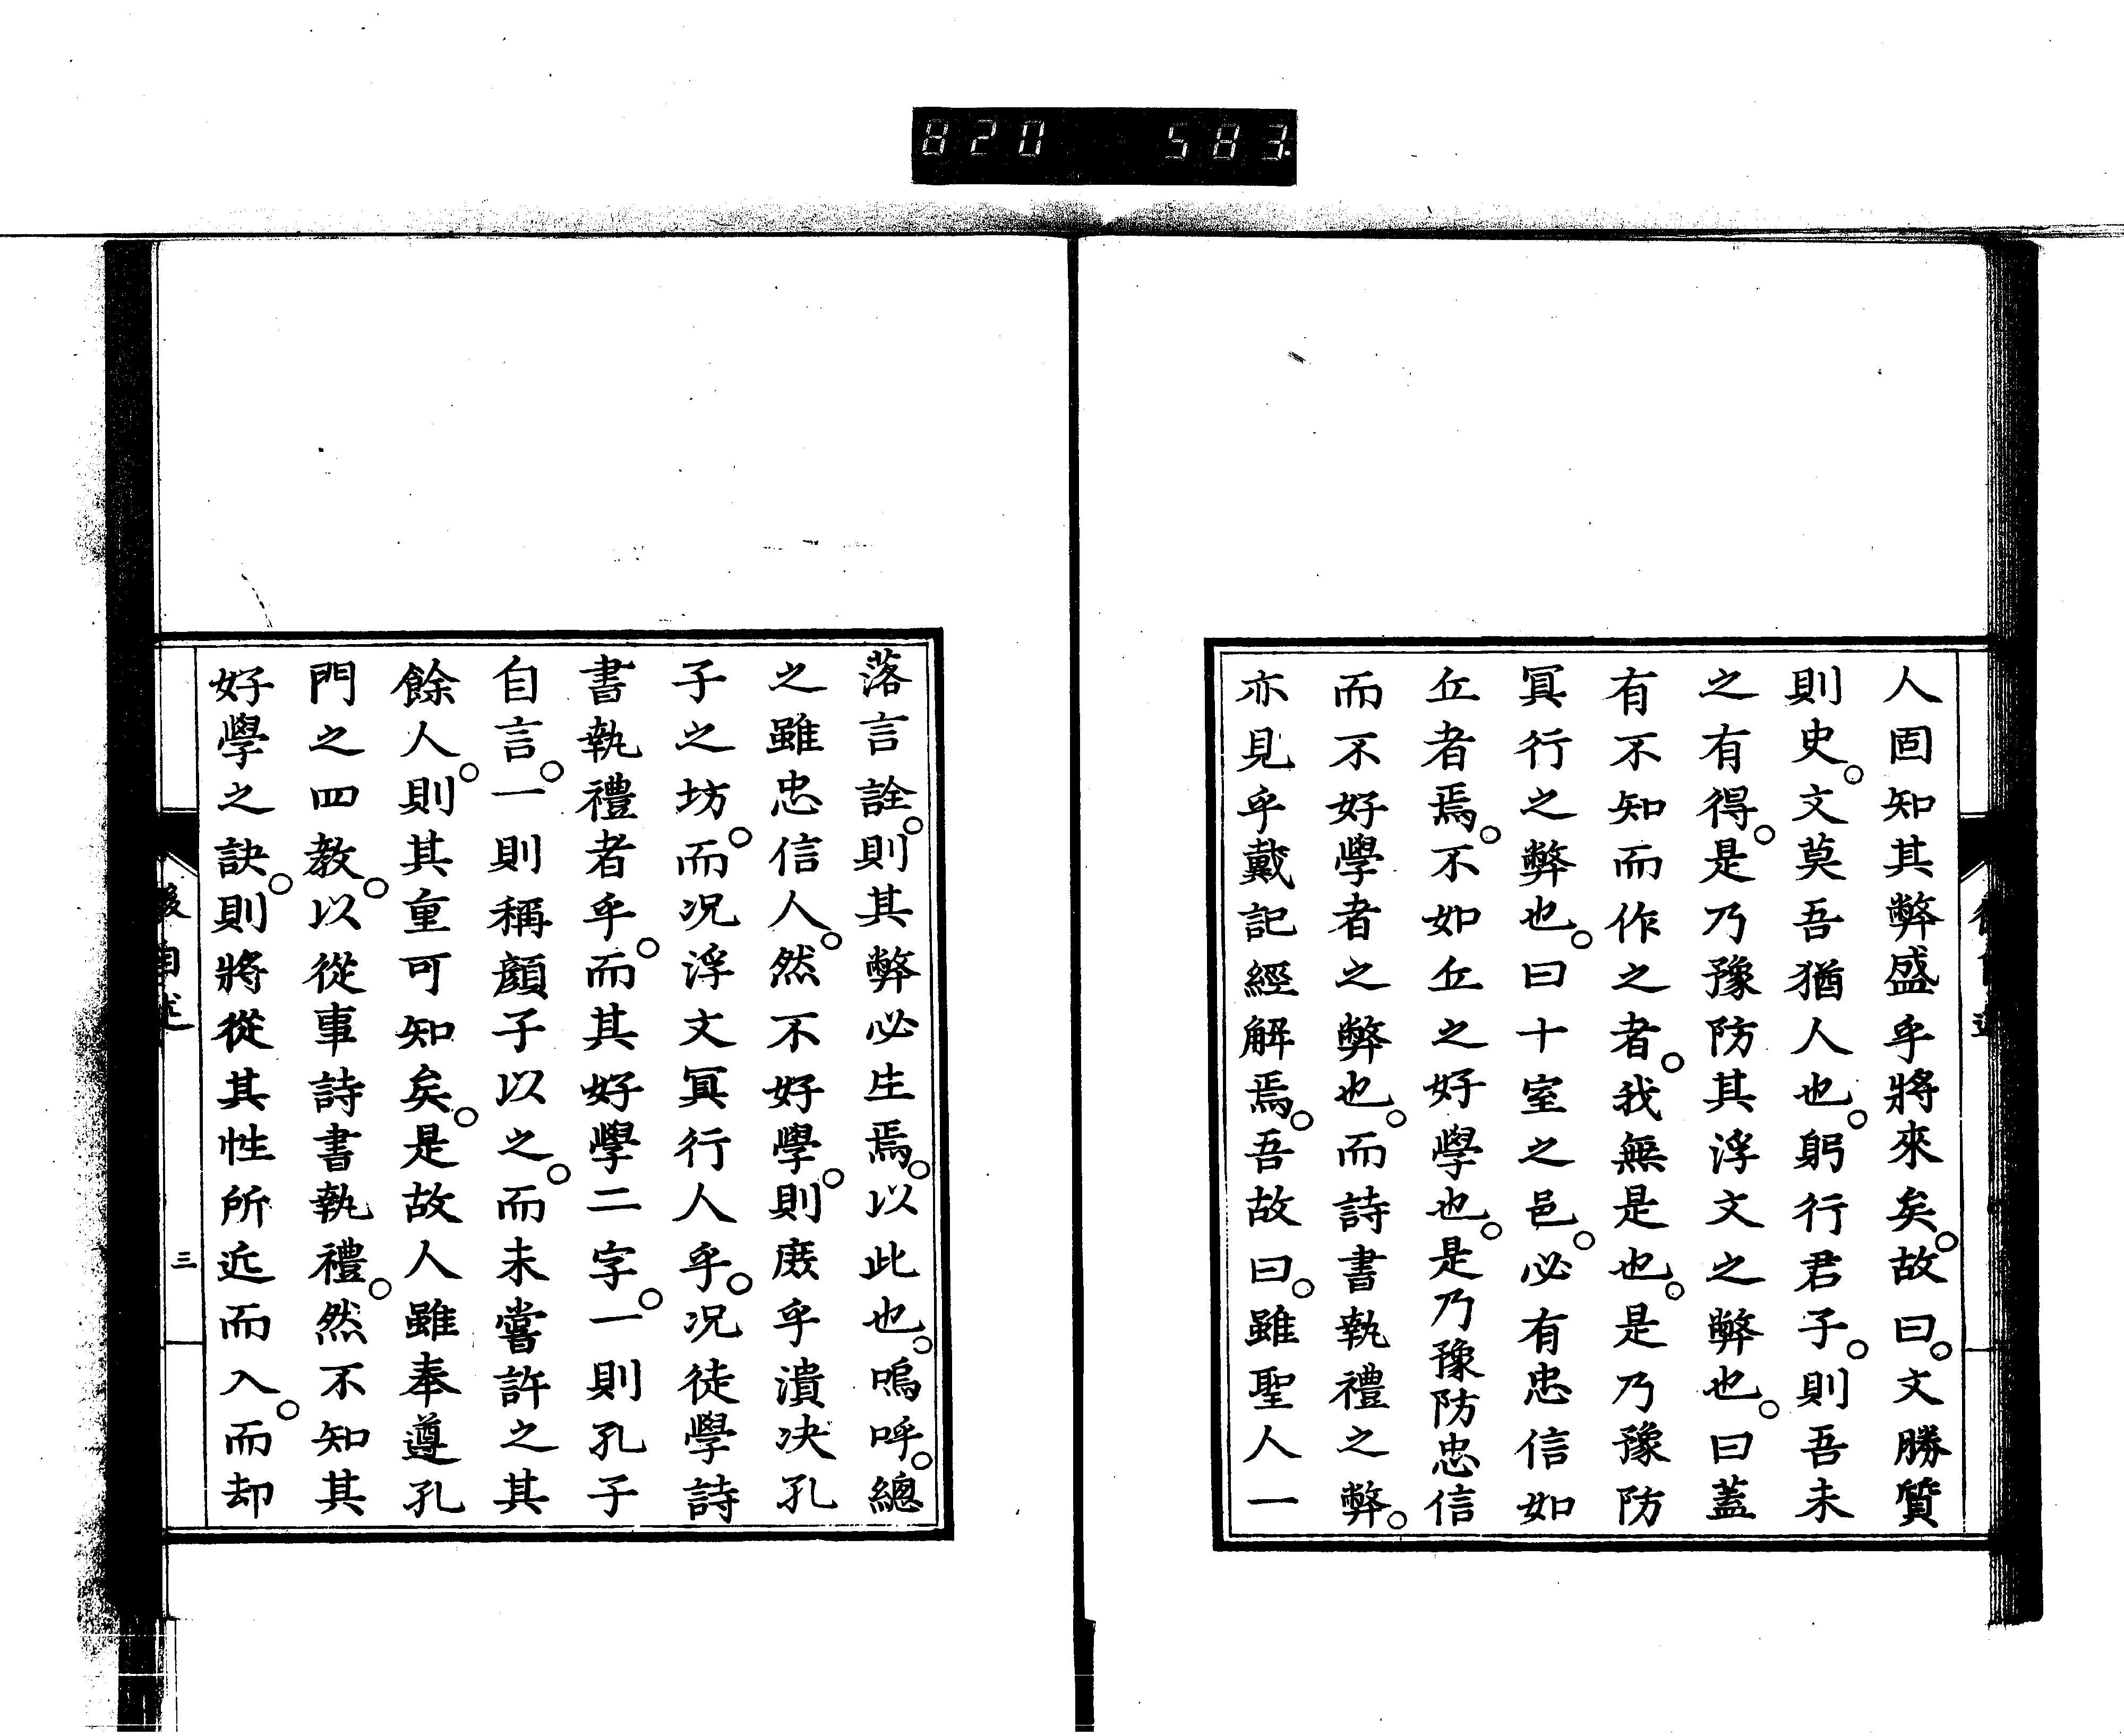 820 583
人固知其弊盛乎將來矣。故曰。文勝質
則史。文莫吾猶人也。躬行君子。則吾未
之有得。是乃豫防其浮文之弊也。曰蓋
有不知而作之者。我無是也。是乃豫防
冥行之弊也。曰十室之邑。必有忠信如
丘者焉。不如丘之好學也。是乃豫防忠信
而不好學者之弊也。而詩書執禮之弊。
亦見乎戴記經解焉。吾故曰。雖聖人一
落言詮。則其弊必生焉。以此也。嗚呼。總
之雖忠信人。然不好學。則庶乎潰決孔
子之坊。而况浮文冥行人乎。况徒學詩
書執禮者乎。而其好學二字。一則孔子
自言。一則稱顏子以之。而未嘗許之其
餘人。則其重可知矣。是故人雖奉遵孔
門之四教。以從事詩書執禮。然不知其
好學之訣。則將從其性所近而入。而却
後自述
三